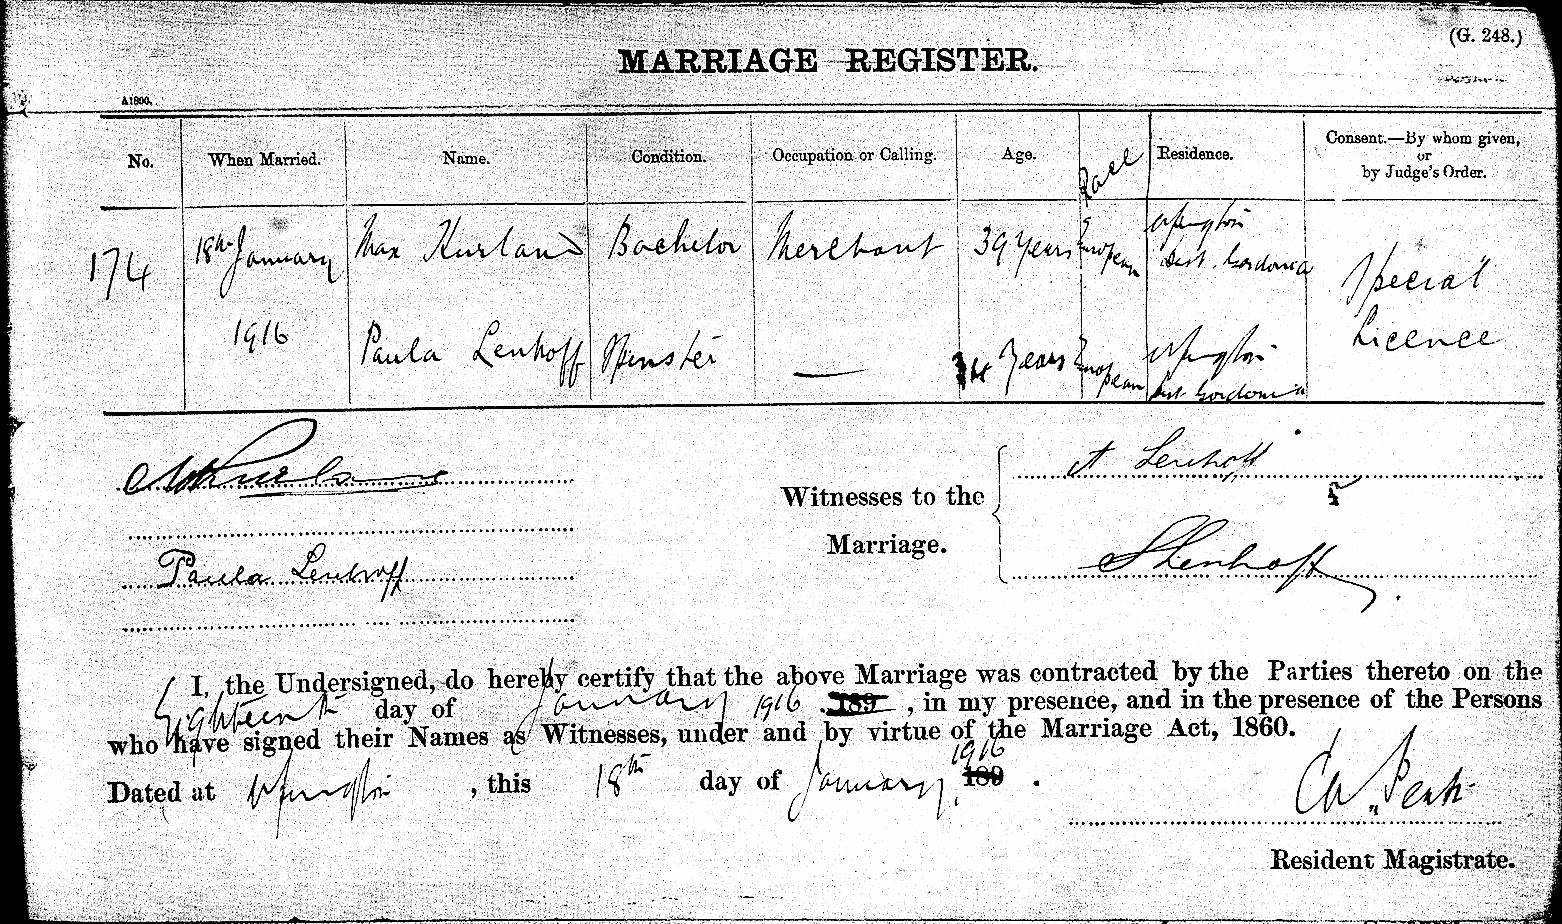 (G. 248.)
MARRIAGE REGISTER.
A1800.
No. When Married. Name. Condition. Occupation or Calling. Age. Race Residence. Consent.—By whom given, or by Judge's Order.
174 18th January 1916 Max Kurland Bachelor Merchant 39 Years European Upington Dist. Gordonia Special Licence
Paula Lenhoff Spinster — 34 Years European Upington Dist. Gordonia
A Lenhoff
Witnesses to the
Marriage.
Paula Lenhoff
S Lenhoff
I, the Undersigned, do hereby certify that the above Marriage was contracted by the Parties thereto on the
Eighteenth day of January 1916 189 , in my presence, and in the presence of the Persons
who have signed their Names as Witnesses, under and by virtue of the Marriage Act, 1860.
Dated at Upington , this 18th day of January, 1916 189 .
Resident Magistrate.